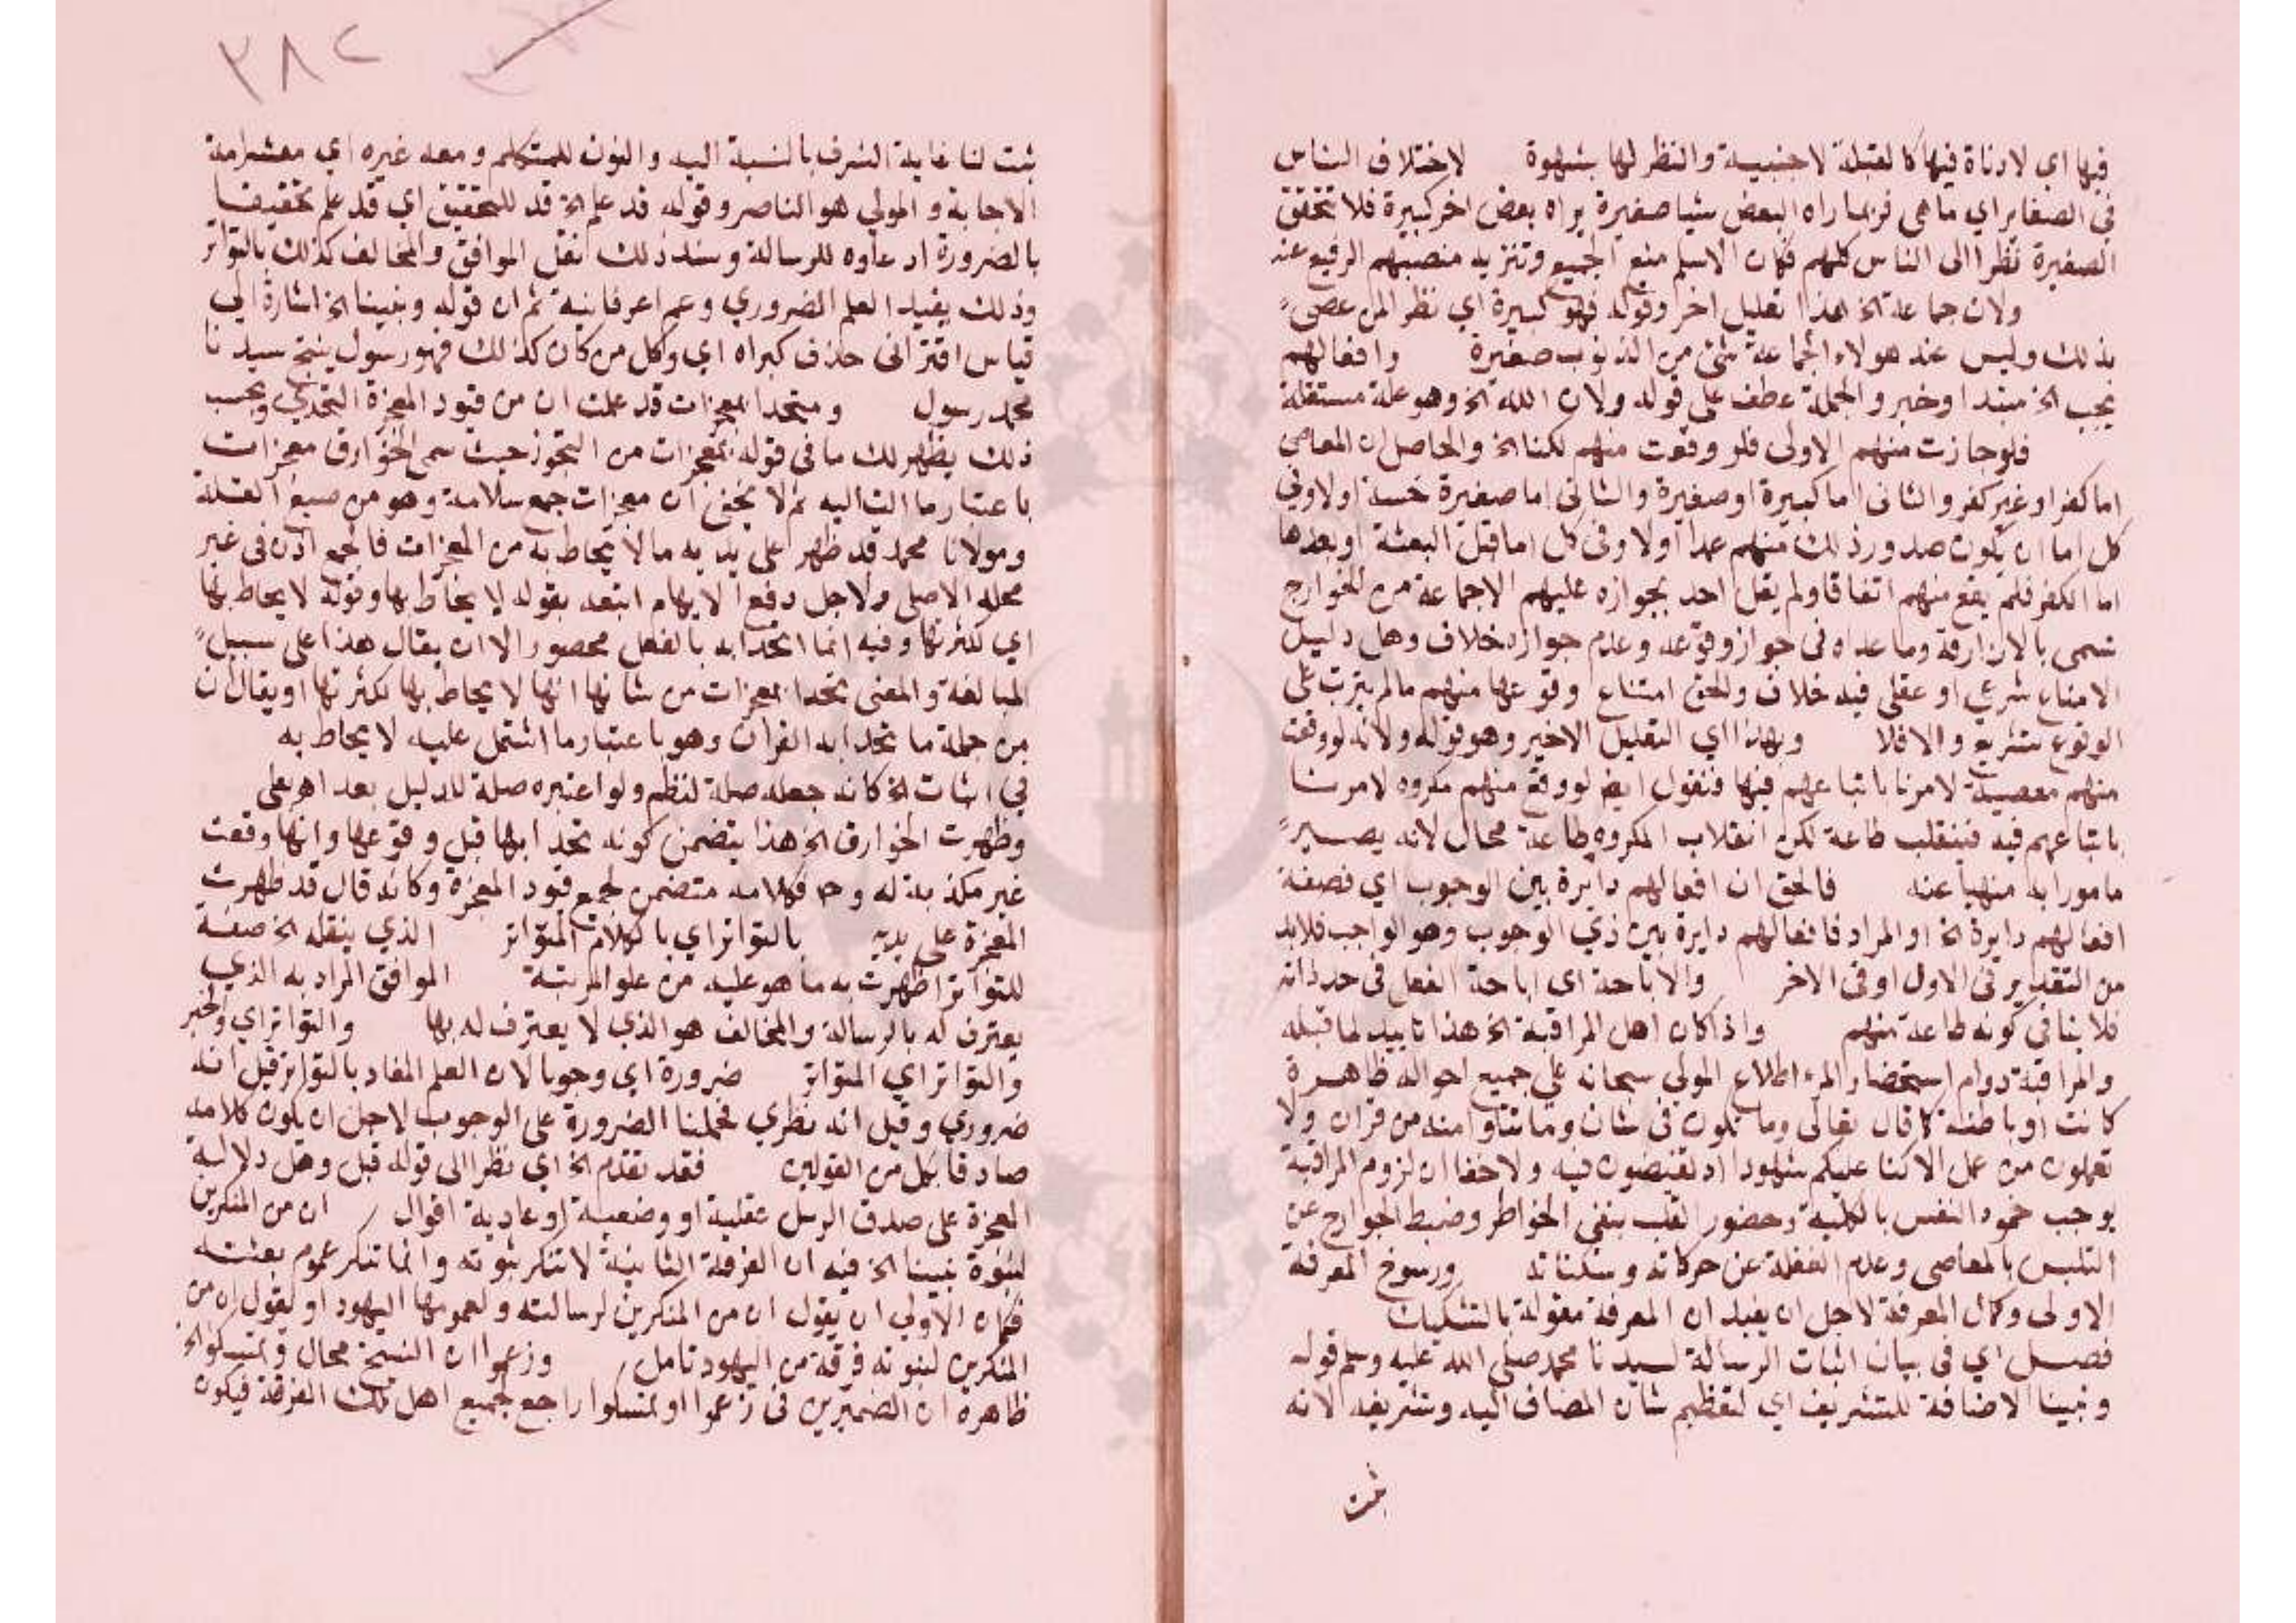 فيها اي لا دناة فيها كالقبلة لاجنبية والنظر لها بشهوة لاختلاف الناس
في الصغاير اي ما هي فربما راه البعض شيا صغيرة يراه بعض اخر كبيرة فلا تتحقق
الصغيرة نظرا الى الناس كلهم فكان الاسلم منع الجميع وتنزيه منصبهم الرفيع عنه
ولان جماعة الخ هذا تعليل اخر وقوله فهو كبيرة اي نظر المن عصى
بذلك وليس عند هولاء الجماعة شئ من الذنوب صغيرة وافعالهم
يجب الخ مبتدا وخبر والجملة عطف على قوله ولان الله الخ وهو علة مستقلة
فلو جازت منهم الاولى فلو وقعت منهم لكنا الخ والحاصل ان المعاصي
اما كفرا وغير كفر والثاني اما كبيرة او صغيرة والثاني اما صغيرة خسة اولا وفي
كل اما ان يكون صدور ذلك منهم عمدا اولا وفي كل اما قبل البعثة او بعدها
اما الكفر فلم يقع منهم اتفاقا ولم يقل احد بجوازه عليهم الا جماعة من الخوارج
تسمى بالازارقة وما عداه في جواز وقوعه وعدم جوازه خلاف وهل دليل
الامتناع شرعي او عقلي فيه خلاف والحق امتناع وقوعها منهم مالم يترتب على
الوقوع تشريع والا فلا وبهذا اي التعليل الاخير وهو قوله ولانه لو وقعت
منهم معصية لامرنا باتباعهم فيها فنقول ايض لو وقع منهم مكروه لامرنا
باتباعهم فيه فينقلب طاعة لكن انقلاب المكروه طاعة محال لانه يصير
مامورا به منهيا عنه فالحق ان افعالهم دايرة بين الوجوب اي فصفة
افعالهم دايرة الخ او المراد فافعالهم دايرة بين ذي الوجوب وهو الواجب فلا بد
من التقدير في الاول او في الاخر والاباحة اي اباحة الفعل في حد ذاته
فلا ينافي كونه طاعة منهم واذا كان اهل المراقبة الخ هذا تاييد لما قبله
والمراقبة دوام استحضار المرء اطلاع المولي سبحانه على جميع احواله ظاهرة
كانت او باطنة كما قال تعالى وما تكون في شان وما تتلوا منه من قران ولا
تعملون من عمل الا كنا عليكم شهودا اذ تفيضون فيه ولا خفا ان لزوم المراقبة
يوجب خمود النفس بالكلية وحضور القلب بنفي الخواطر وضبط الجوارح عن
التلبس بالمعاصي وعدم الغفلة عن حركاته وسكناته ورسوخ المعرفة
الاولى وكمال المعرفة لاجل ان يفيد ان المعرفة مقولة بالتشكيك
فصل اي في بيان اثبات الرسالة لسيدنا محمد صلى الله عليه وسلم قوله
ونبينا الاضافة للتشريف اي لتعظيم شان المضاف اليه وتشريفه لانه
ثبت
٣٨٢
ثبت لنا غاية الشرف بالنسبة اليه والنون للمتكلم ومعه غيره اي معشر امة
الاجابة والمولي هو الناصر وقوله قد علم الخ قد للتحقيق اي قد علم تحقيقا
بالضرورة ادعاوه للرسالة وسند ذلك نقل الموافق والمخالف كذلك بالتواتر
وذلك يفيد العلم الضروري ثم ان قوله ونبينا الخ اشارة الي
قياس اقتراني حذف كبراه اي وكل من كان كذلك فهو رسول ينتج سيدنا
محمد رسول ومتحدا بمعجزات قد علمت ان من قيود المعجزة التحدي وبحسب
ذلك يظهر لك ما في قوله بمعجزات من التجوز حيث سمى الخوارق معجزات
باعتبار ما الت اليه ثم لا يخفى ان معجزات جمع سلامة وهو من صيغ القلة
ومولانا محمد قد ظهر على يديه مالا يحاط به من المعجزات فالجمع اذن في غير
محله الاصلي ولاجل دفع الايهام اتبعه بقوله لا يحاط بها وقوله لا يحاط بها
اي لكثرتها وفيه انما اتحدا به بالفعل محصور الا ان يقال هذا على سبيل
المبالغة والمعنى تحدا بمعجزات من شانها انها لا يحاط بها لكثرتها او يقال ان
من جملة ما تحدا به القران وهو باعتبار ما اشتمل عليه لا يحاط به
في اثبات الخ كانه جعله صلة لنظم ولو اعتبره صلة للدليل بعد اهر على
وظهرت الخوارق الخ هذا يتضمن كونه تحدا بها قبل وقوعها وانها وقعت
غير مكذبة له وح فكلامه متضمن لجمع قيود المعجزة وكانه قال قد ظهرت
المعجزة على يديه بالتواتر اي بالكلام المتواتر الذي ينقله الخ صفة
للتواتر اظهرت به ما هو عليه من علو المرتبة الموافق المراد به الذي
يعترف له بالرسالة والمخالف هو الذي لا يعترف له بها والتواتر اي والخبر
والتواتر اي المتواتر ضرورة اي وجوبا لان العلم المفاد بالتواتر قيل انه
ضروري وقيل انه نظري فحملنا الضرورة على الوجوب لاجل ان يكون كلامه
صادقا بكل من القولين فقد تقدم الخ اي نظرا الى قوله قبل وهل دلالة
المعجزة على صدق الرسل عقلية او وضعية او عادية اقوال ان من المنكرين
لنبوة نبينا الخ فيه ان الفرقة الثانية لا تنكر نبوته وانما تنكر عموم بعثته
فكان الاولي ان يقول ان من المنكرين لرسالته ولعمومها اليهود او يقول ان من
المنكرين لنبوته فرقة من اليهود تامل وزعموا ان النسخ محال وتمسكوا الخ
ظاهره ان الضميرين في زعموا وتمسكوا راجع لجميع اهل تلك الفرقة فيكون